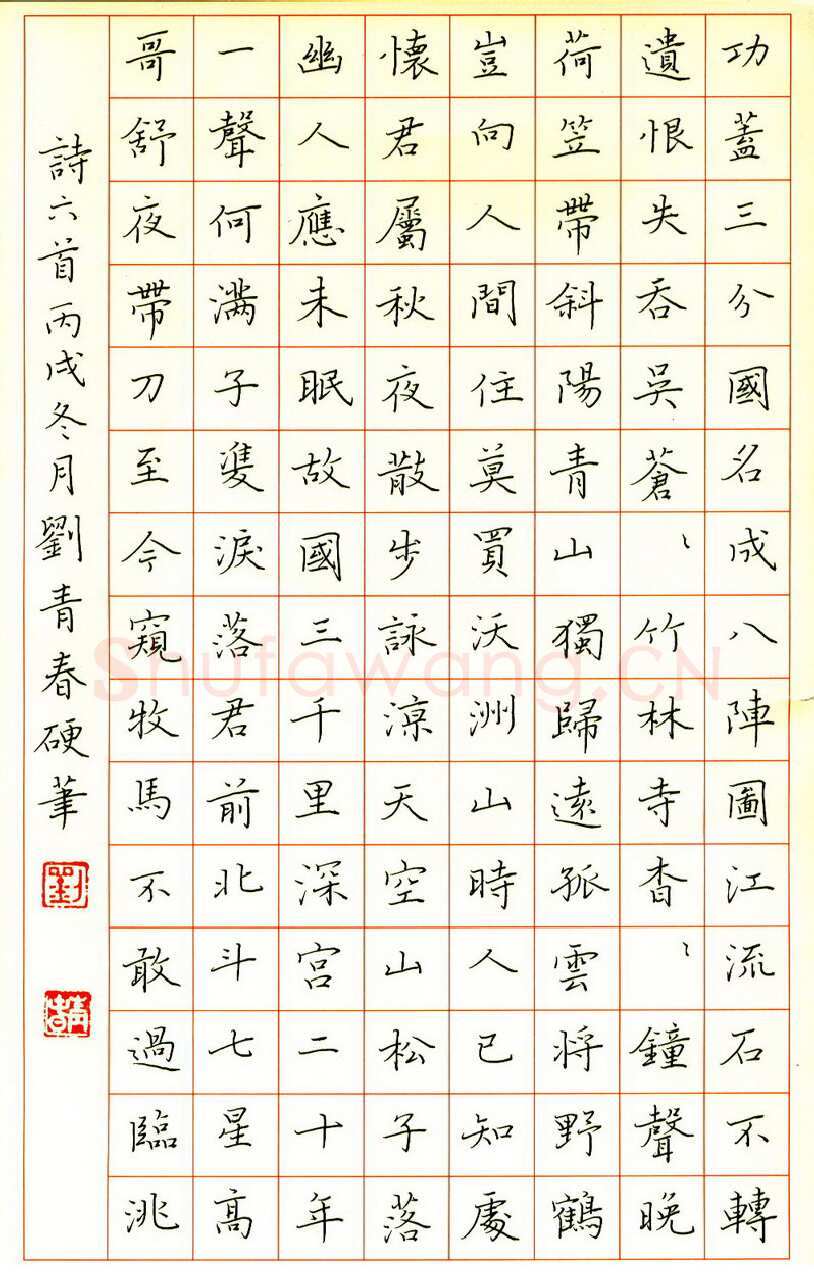 功蓋三分國名成八陣圖江流石不轉
遺恨失吞吳蒼〻竹林寺杳〻鐘聲晚
荷笠帶斜陽青山獨歸遠孤雲將野鶴
豈向人間住莫買沃洲山時人已知處
懷君屬秋夜散步詠涼天空山松子落
幽人應未眠故國三千里深宮二十年
一聲何满子雙淚落君前北斗七星高
哥舒夜帶刀至今窺牧馬不敢過臨洮
詩六首丙戌冬月劉青春硬筆
劉
青春
Shufawang.CN